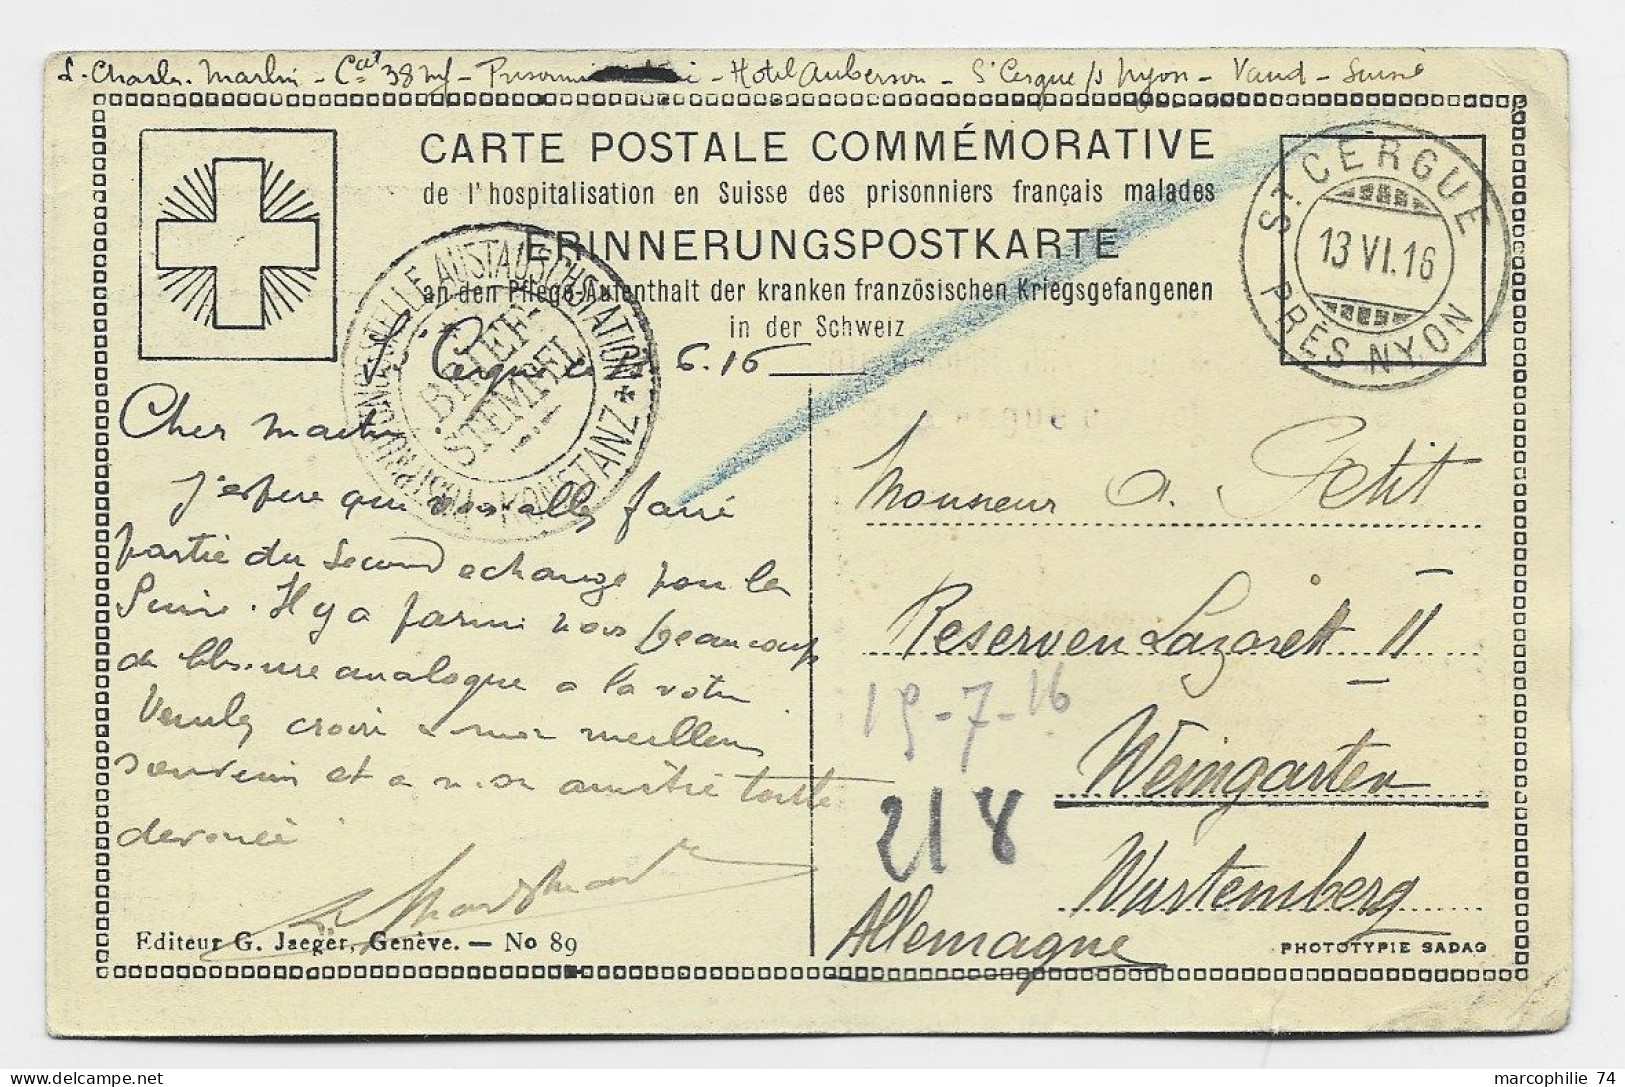 Charles Martin - 38 - Hotel Auberson - St Cergue s/ Nyon - Vaud - Suisse
CARTE POSTALE COMMÉMORATIVE
de l'hospitalisation en Suisse des prisonniers français malades
ERINNERUNGSPOSTKARTE
an den Pflege-Aufenthalt der kranken französischen Kriegsgefangenen
in der Schweiz
ST. CERGUE
13 VI.16
PRÈS NYON
AUSTAUSCHSTATION
KONSTANZ
BRIEF-
STEMPEL
St Cergue le 6.16
Cher
J'espère que vous allez faire
partie du second echange pour la
Suisse. Il y a parmi nous beaucoup
de blessure analogue a la votre
Veuillez croire a mon meilleur
souvenir et a mon amitié toute
devouée
Monsieur A. Petit
Reserven Lazarett II
Weingarten
Wurtemberg
Allemagne
19-7-16
218
Editeur G. Jaeger, Genève. — No 89
PHOTOTYPIE SADAG
marcophilie 74